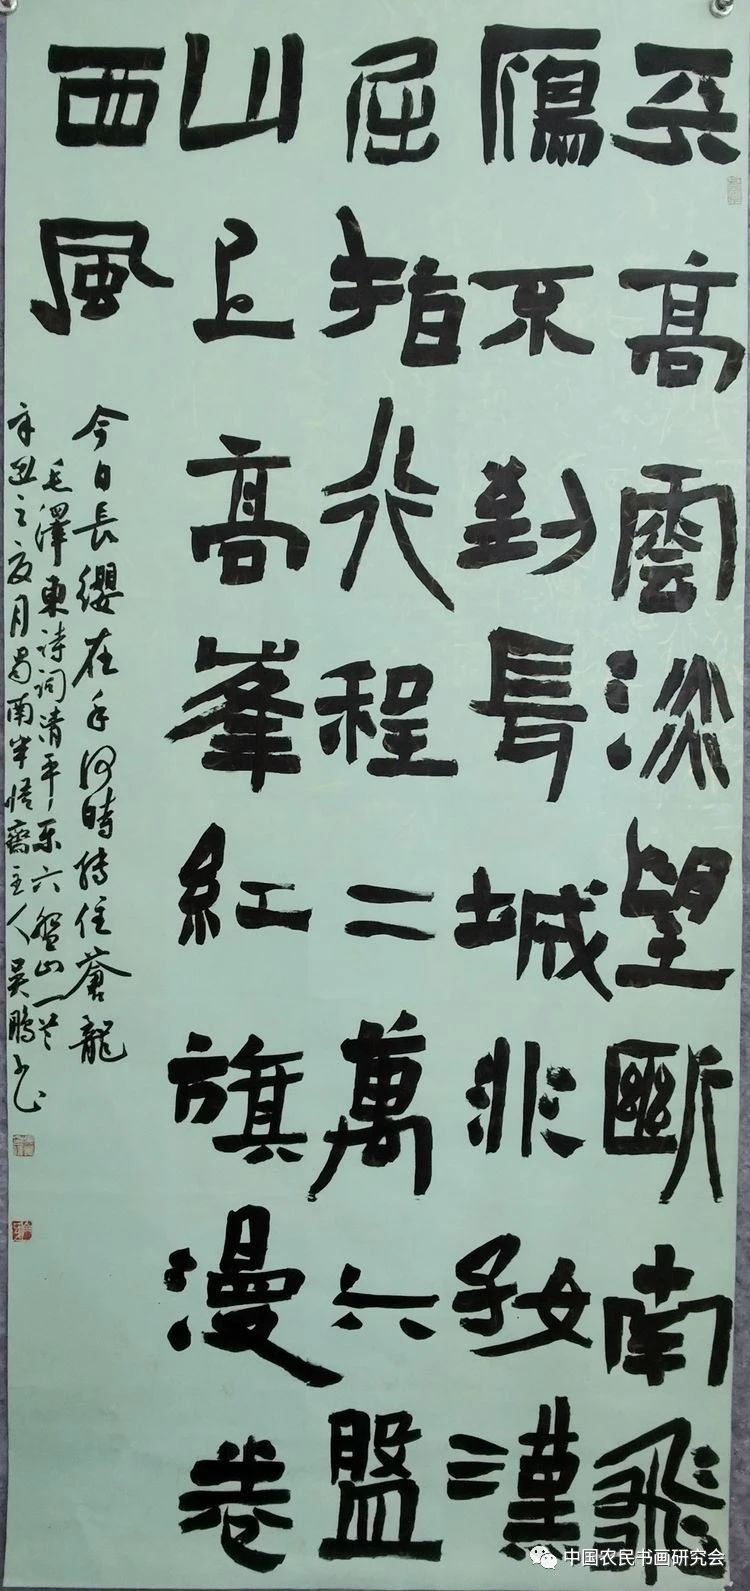 天高雲淡望斷南飛
鴈不到長城非好漢
屈指行程二萬六盤
山上高峯紅旗漫卷
西風
今日長纓在手何時縛住蒼龍
毛澤東詩詞清平乐六盤山一首
辛丑之夏月蜀南半悟齋主人吳鵬书
中国农民书画研究会